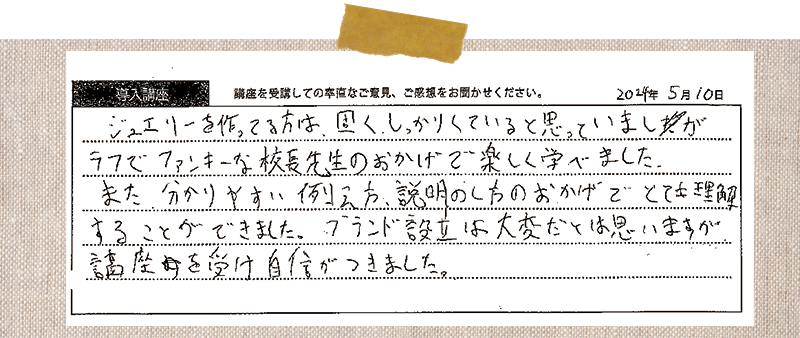 導入講座
講座を受講しての率直なご意見、ご感想をお聞かせください。
2024年 5月10日
ジュエリーを作ってる方は、固く、しっかりくているいと思っていましたが
ラフでファンキーな校長先生のおかげで楽しく学べました。
また 分かりやすい例え方、説明のし方のおかげでとても理解
することができました。ブランド設立は大変だとは思いますが
講座を受け自信がつきました。